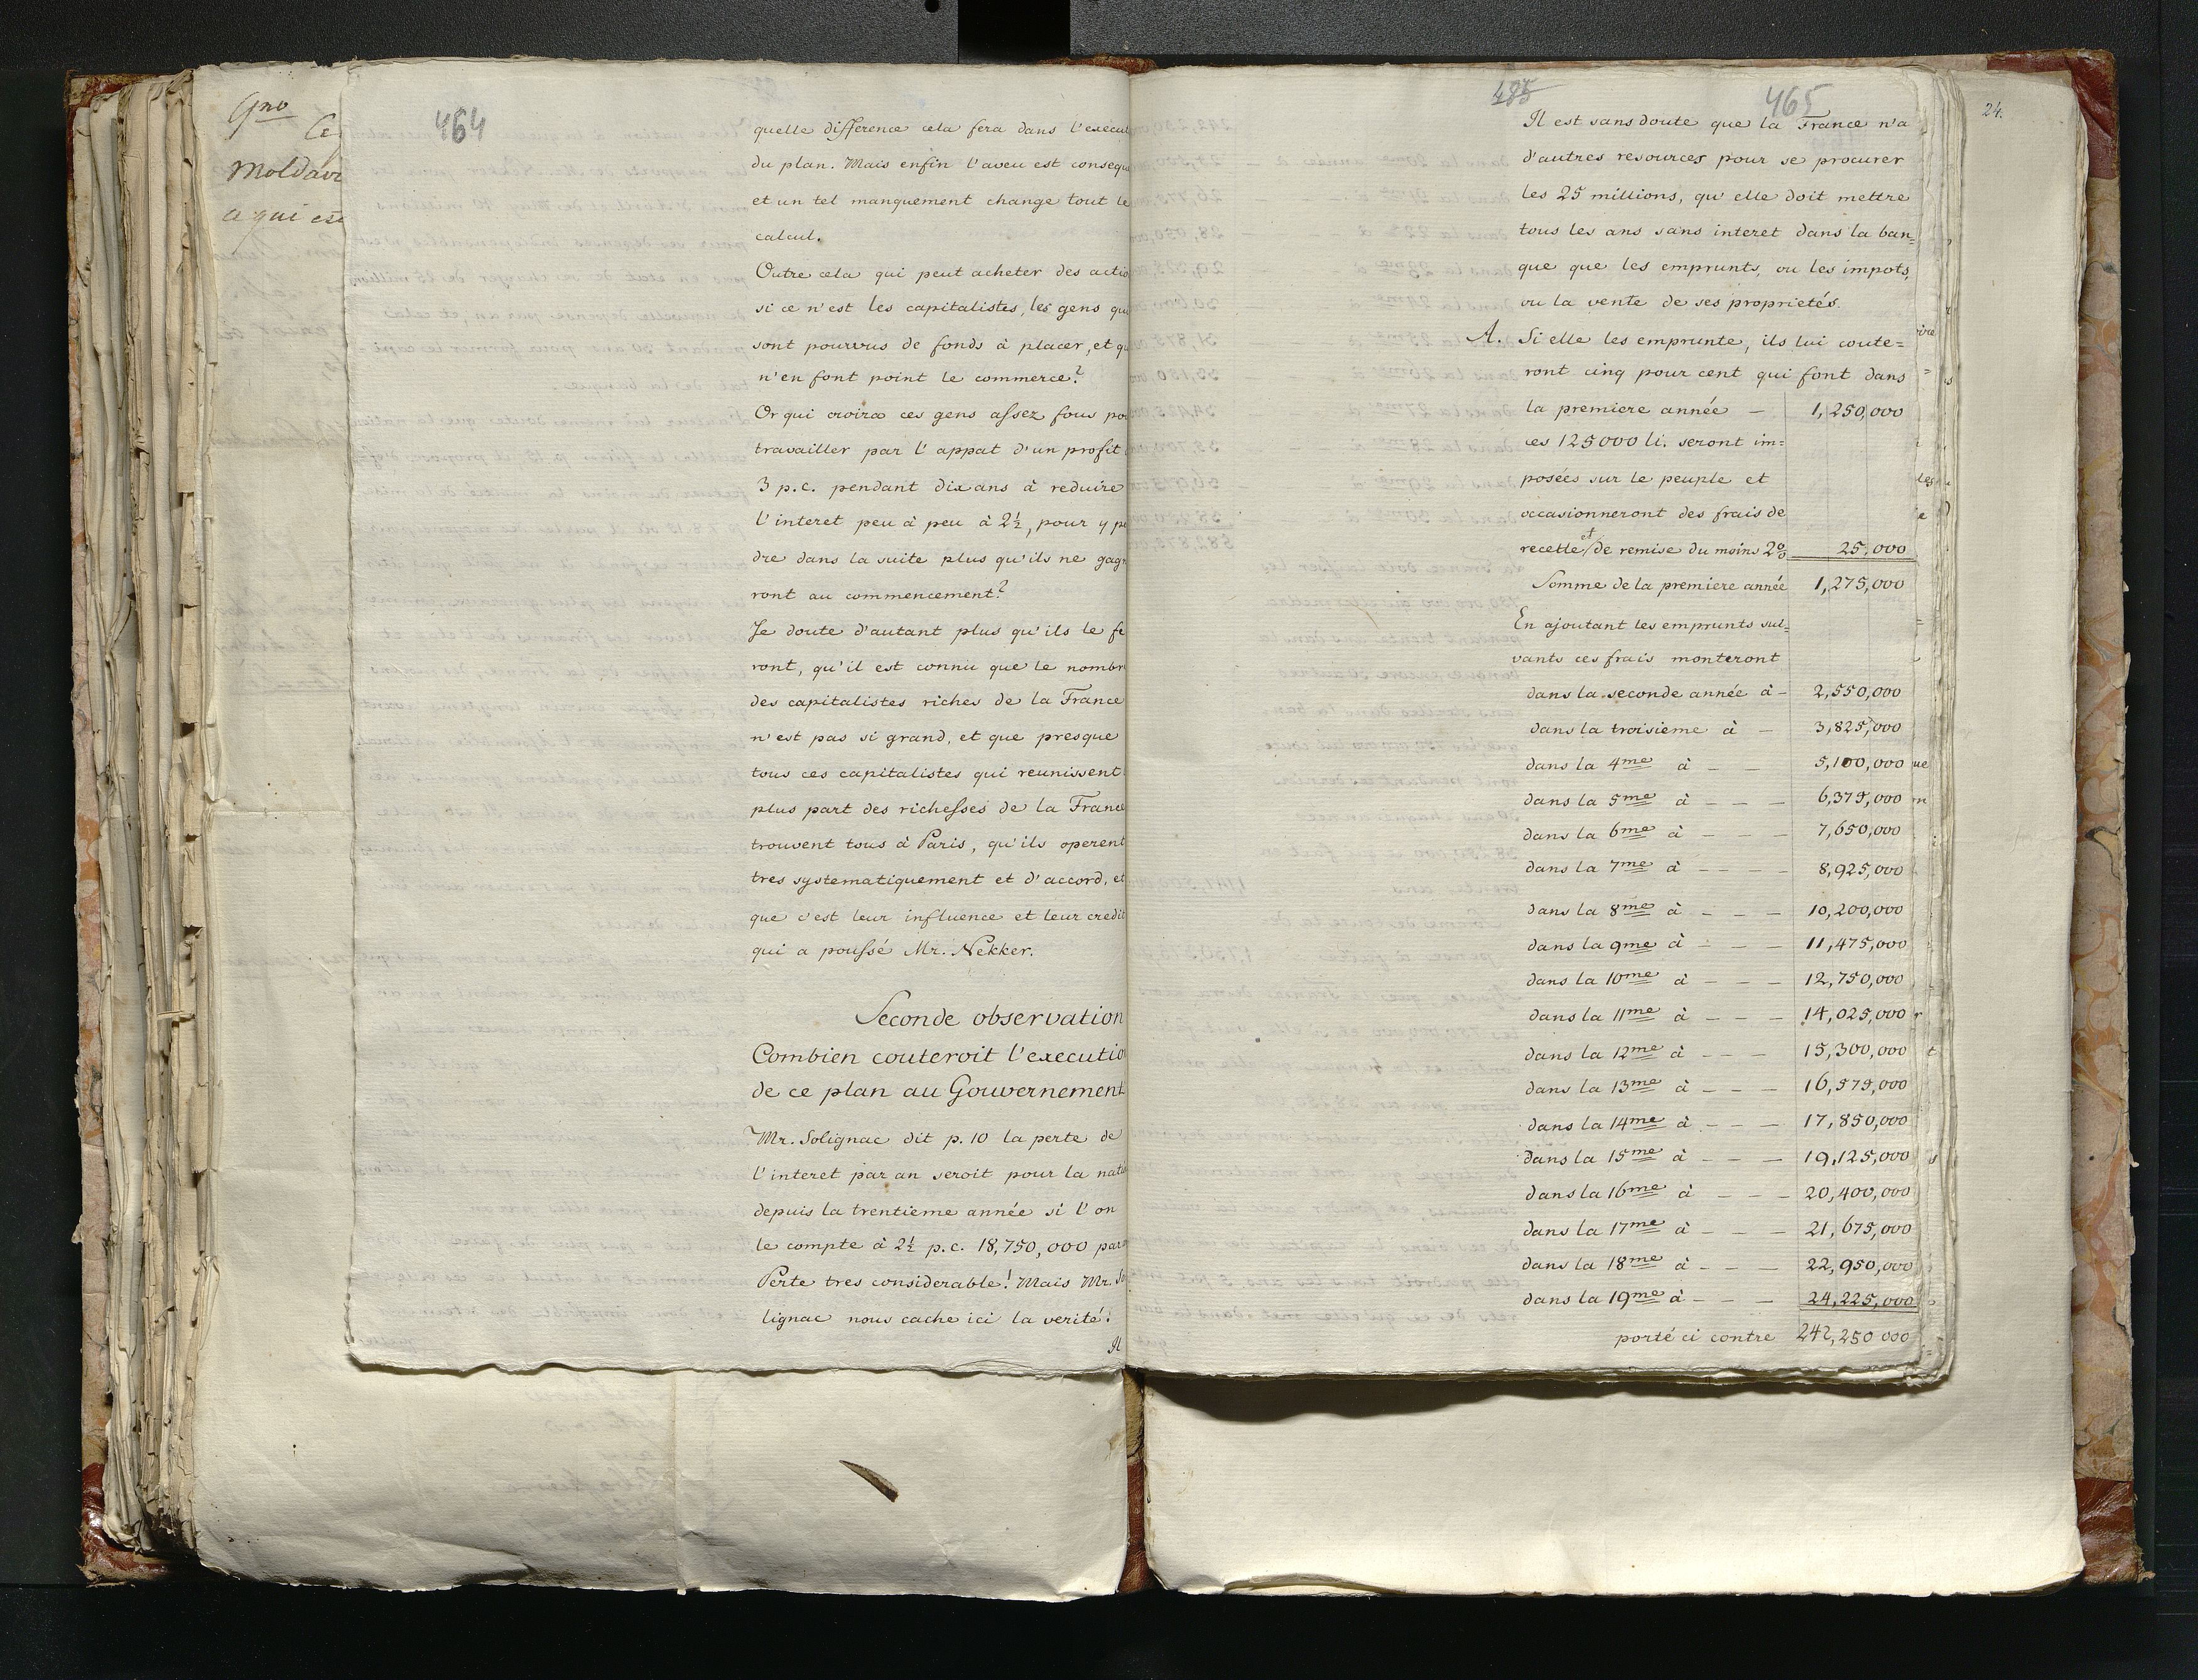 9no
Ce
Moldavi
a qui est
464
quelle difference cela fera dans l'execut
du plan. Mais enfin l'aveu est consequ
et un tel manquement change tout le
calcul.
Outre cela qui peut acheter des actio
si ce n'est les capitalistes, les gens qui
sont pourvus de fonds à placer, et qu
n'en font point le commerce?
Or qui croira ces gens assez fous pou
travailler par l'appat d'un profit
3 p.c. pendant dix ans à reduire
l'interet peu à peu à 2½, pour y pe
dre dans la suite plus qu'ils ne gagn
ront au commencement?
Je doute d'autant plus qu'ils le fe
ront, qu'il est connu que le nombr
des capitalistes riches de la France
n'est pas si grand, et que presque
tous ces capitalistes qui reunissent
plus part des richesses de la France
trouvent tous à Paris, qu'ils operent
tres systematiquement et d'accord, et
que c'est leur influence et leur credit
qui a poussé Mr. Nekker.
Seconde observation
Combien couteroit l'executio
de ce plan au Gouvernement
Mr. Solignac dit p. 10 la perte de
l'interet par an seroit pour la nati
depuis la trentieme année si l'on
le compte à 2½ p.c. 18,750,000 par
Perte tres considerable! Mais Mr. So
lignac nous cache ici la verité!
Il
485
465
24.
Il est sans doute que la France n'a
d'autres resources pour se procurer
les 25 millions, qu'elle doit mettre
tous les ans sans interet dans la ban=
que que les emprunts, ou les impots,
ou la vente de ses proprietés.
A. Si elle les emprunte, ils lui coute=
ront cinq pour cent qui font dans
la premiere année – 1,250,000
ces 125000 li. seront im=
posées sur le peuple et
occasionneront des frais de
recette et de remise du moins 2% 25,000
Somme de la premiere année 1,275,000
En ajoutant les emprunts sui=
vants ces frais monteront
dans la seconde année à – 2,550,000
dans la troisieme à – 3,825,000
dans la 4me à – – 5,100,000
dans la 5me à – – – 6,375,000
dans la 6me à – – – 7,650,000
dans la 7me à – – – – 8,925,000
dans la 8me à – – – 10,200,000
dans la 9me à – – – 11,475,000
dans la 10me à – – – 12,750,000
dans la 11me à – – – 14,025,000
dans la 12me à – – – 15,300,000
dans la 13me à – – – 16,575,000
dans la 14me à – – – 17,850,000
dans la 15me à – – – 19,125,000
dans la 16me à – – – 20,400,000
dans la 17me à – – – 21,675,000
dans la 18me à – – – 22,950,000
dans la 19me à – – – 24,225,000
porté ci contre 242,250 000